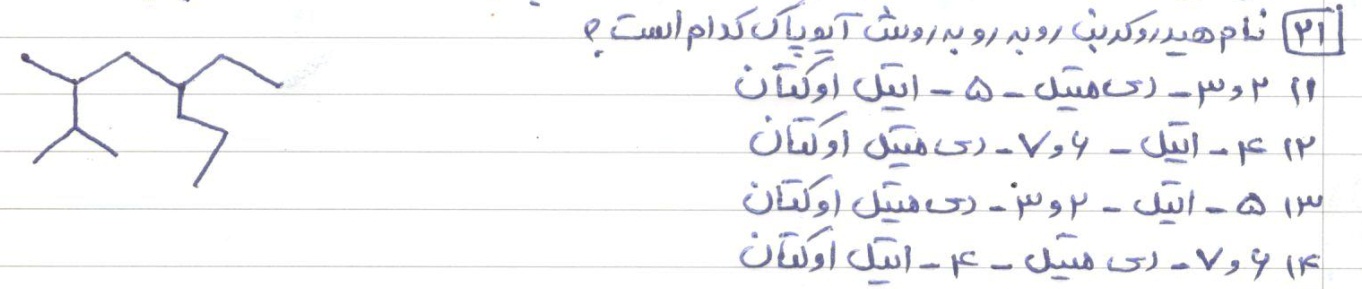 ۲۱ نام هیدروکربن روبه رو به روش آیوپاک کدام است؟
۱) ۲ و ۳ - دی متیل - ۵ - اتیل اوکتان
۲) ۴ - اتیل - ۶ و ۷ - دی متیل اوکتان
۳) ۵ - اتیل - ۲ و ۳ - دی متیل اوکتان
۴) ۶ و ۷ - دی متیل - ۴ - اتیل اوکتان